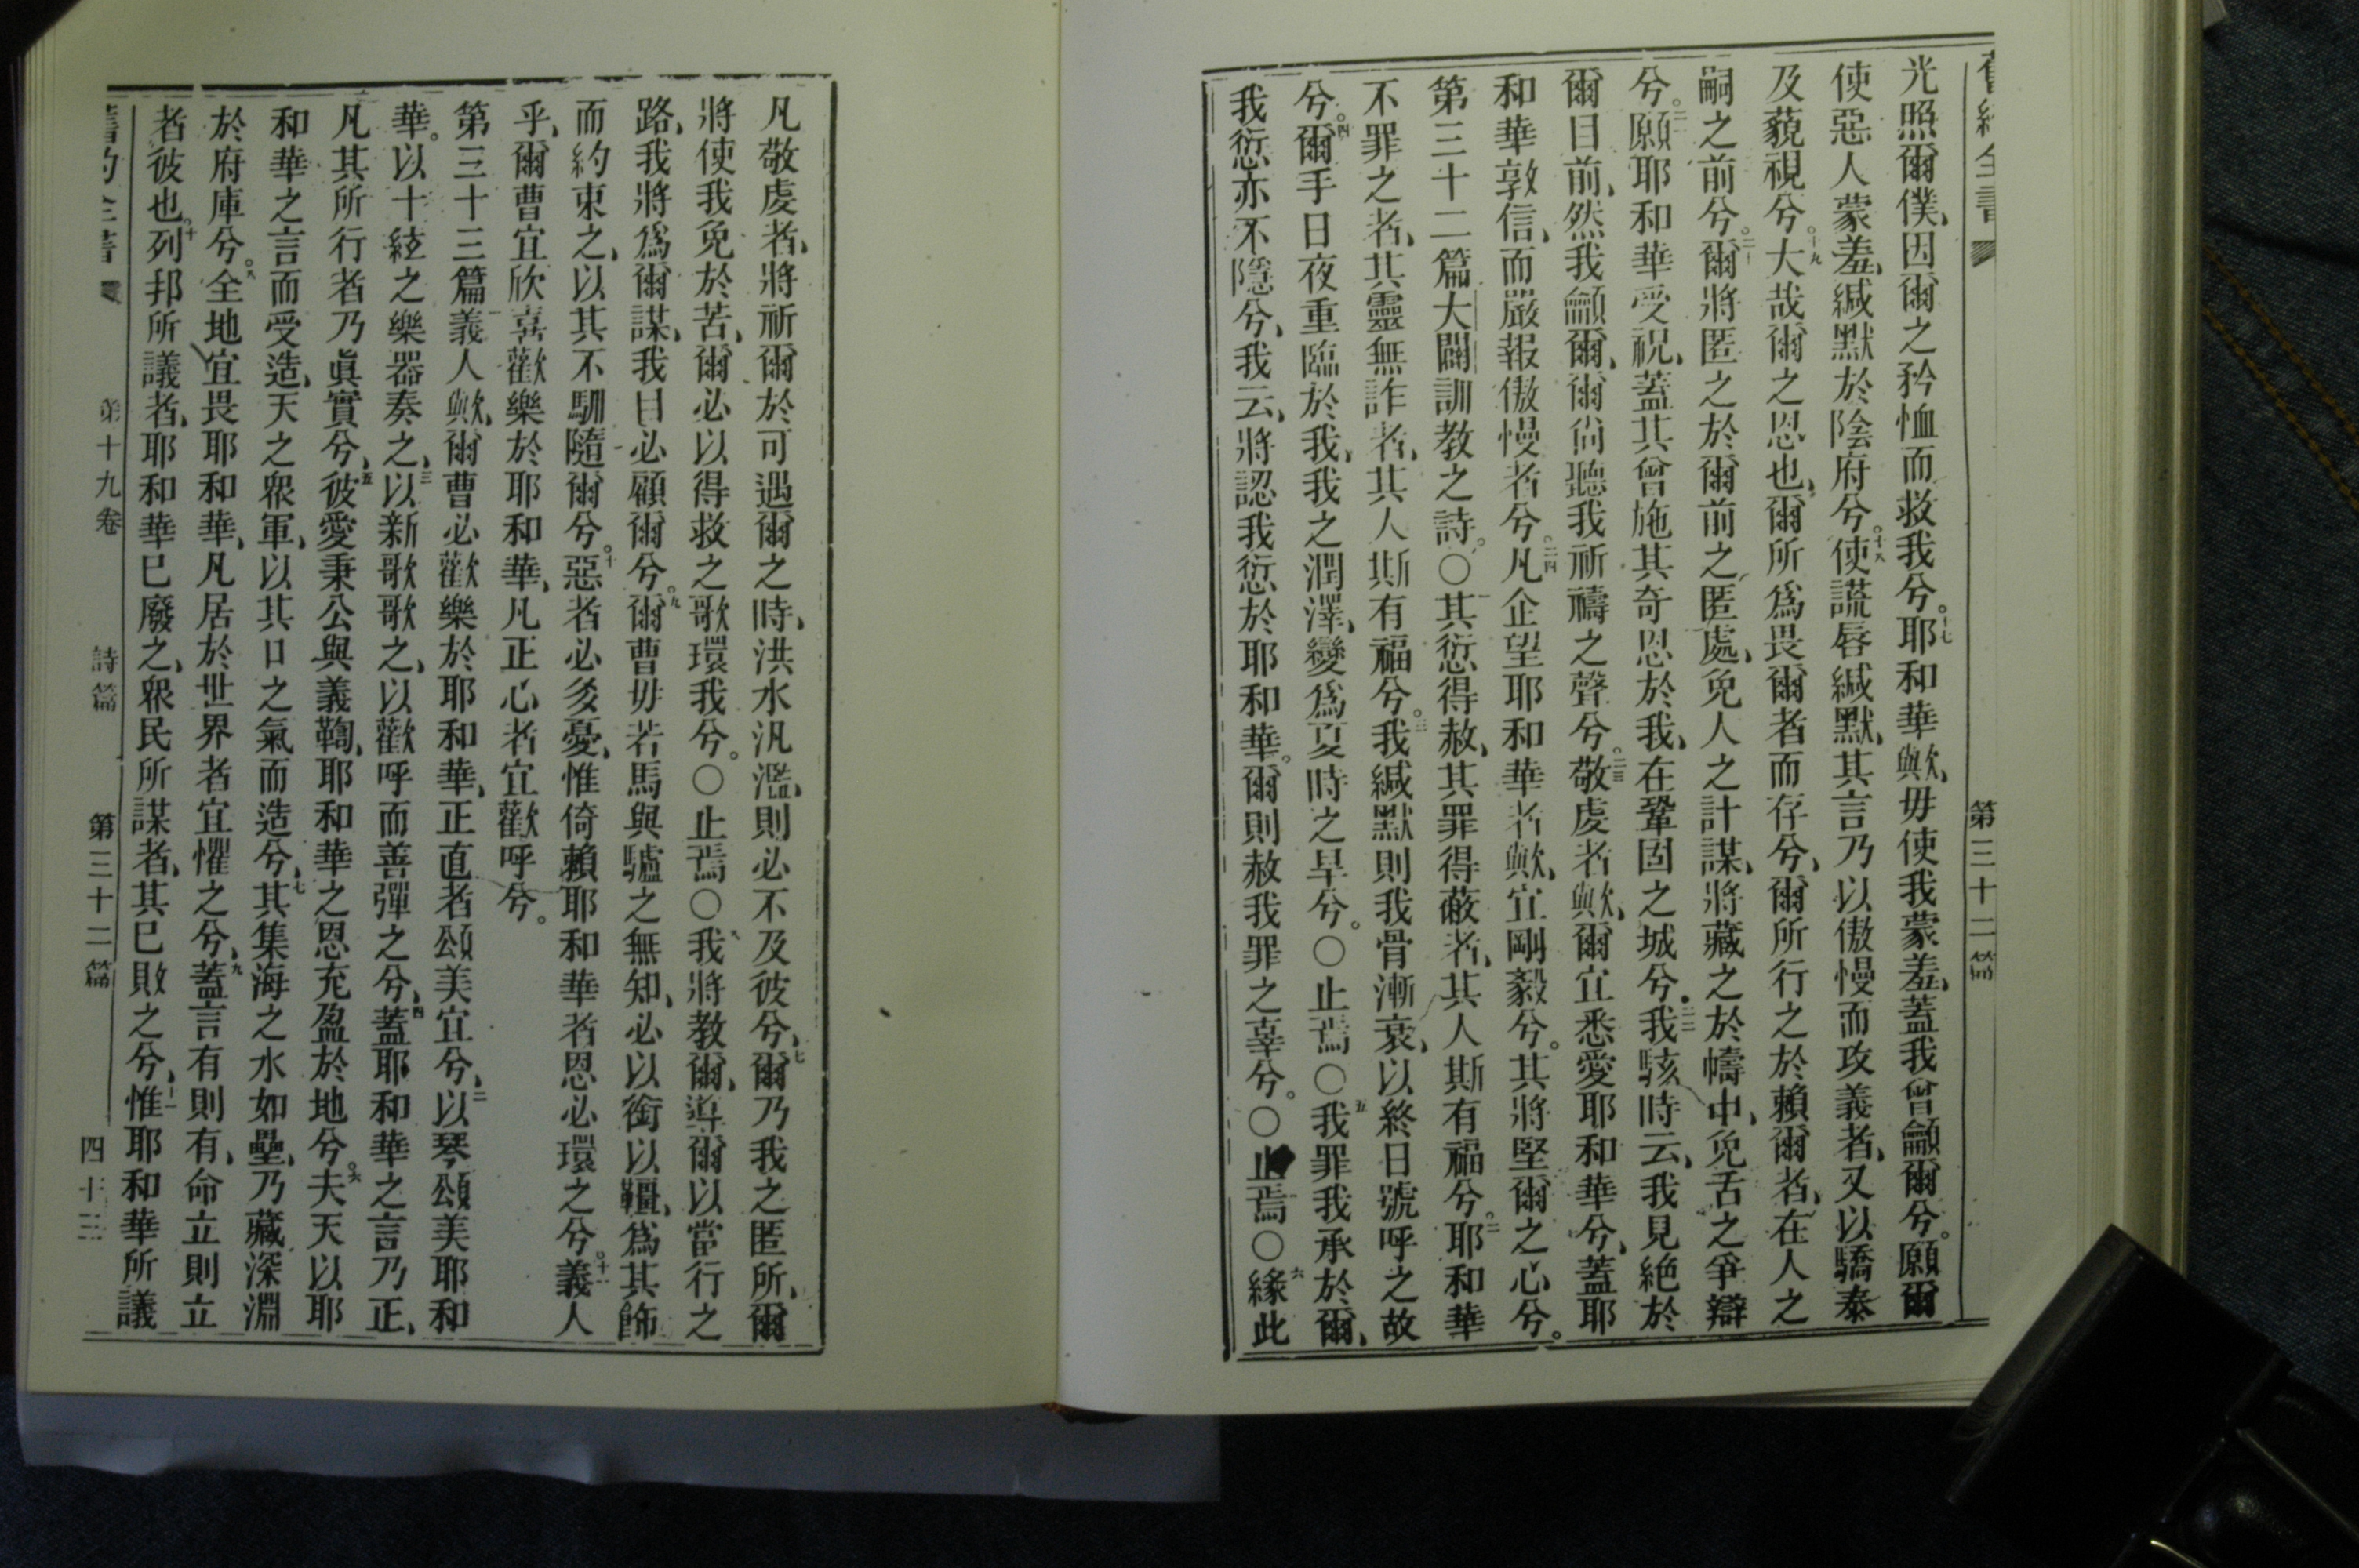 舊約全書 第三十二篇
光照爾僕、因爾之矜恤而救我兮。十七耶和華歟、毋使我蒙羞、蓋我曾籲爾兮。願爾
使惡人蒙羞、緘默於陰府兮。十八使謊唇緘默、其言乃以傲慢而攻義者、又以驕泰
及藐視兮。十九大哉爾之恩也、爾所爲畏爾者而存兮、爾所行之於賴爾者、在人之
嗣之前兮。二十爾將匿之於爾前之匿處、免人之計謀、將藏之於幬中、免舌之爭辯
兮。二一願耶和華受祝、蓋其曾施其奇恩於我、在鞏固之城兮。二二我駭時云、我見絕於
爾目前、然我籲爾、爾尙聽我祈禱之聲兮。二三敬虔者歟、爾宜悉愛耶和華兮、蓋耶
和華敦信、而嚴報傲慢者兮。二四凡企望耶和華者歟、宜剛毅兮。其將堅爾之心兮。
第三十二篇大闢訓教之詩。〇一其愆得赦、其罪得蔽者、其人斯有福兮。二耶和華
不罪之者、其靈無詐者、其人斯有福兮。三我緘默則我骨漸衰、以終日號呼之故
兮。四爾手日夜重臨於我、我之潤澤、變爲夏時之旱兮。〇止焉〇五我罪我承於爾、
我愆亦不隱兮、我云、將認我愆於耶和華。爾則赦我罪之辜兮。〇止焉〇六緣此
凡敬虔者、將祈爾於可遇爾之時、洪水汎濫、則必不及彼兮、七爾乃我之匿所、爾
將使我免於苦、爾必以得救之歌環我兮。〇止焉〇八我將教爾、導爾以當行之
路、我將爲爾謀、我目必顧爾兮。九爾曹毋若馬與驢之無知、必以銜以韁、爲其飾
而約束之、以其不馴隨爾兮。十惡者必多憂、惟倚賴耶和華者恩必環之兮。十一義人
乎、爾曹宜欣喜歡樂於耶和華、凡正心者宜歡呼兮。
第三十三篇一義人歟、爾曹必歡樂於耶和華、正直者頌美宜兮、二以琴頌美耶和
華。以十絃之樂器奏之、三以新歌歌之、以歡呼而善彈之兮、四蓋耶和華之言乃正、
凡其所行者乃眞實兮、五彼愛秉公與義鞫、耶和華之恩充盈於地兮。六夫天以耶
和華之言而受造、天之衆軍、以其口之氣而造兮、七其集海之水如壘、乃藏深淵
於府庫兮。八全地宜畏耶和華、凡居於世界者宜懼之兮、九蓋言有則有、命立則立
者彼也。十列邦所議者、耶和華已廢之、衆民所謀者、其已敗之兮、十一惟耶和華所議
舊約全書 第十九卷 詩篇 第三十二篇 四十三